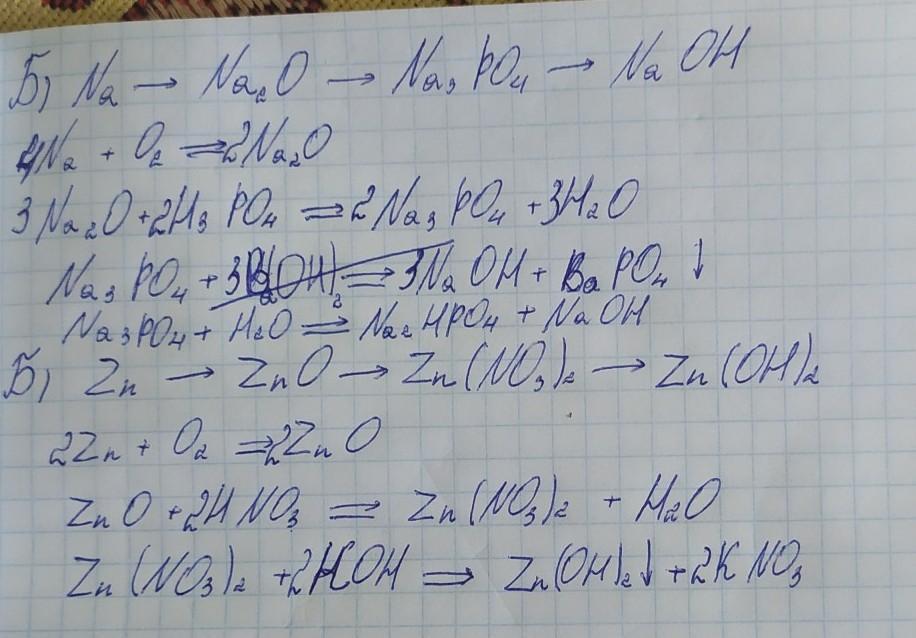 Б) Na → Na₂O → Na₃PO₄ → NaOH
4Na + O₂ ⇒ 2Na₂O
3Na₂O + 2H₃PO₄ ⇒ 2Na₃PO₄ + 3H₂O
Na₃PO₄ + 3Ba(OH)₂ ⇒ 3NaOH + BaPO₄ ↓
Na₃PO₄ + H₂O ⇒ Na₂HPO₄ + NaOH
Б) Zn → ZnO → Zn(NO₃)₂ → Zn(OH)₂
2Zn + O₂ ⇒ 2ZnO
ZnO + 2HNO₃ = Zn(NO₃)₂ + H₂O
Zn(NO₃)₂ + 2KOH ⇒ Zn(OH)₂↓ + 2KNO₃